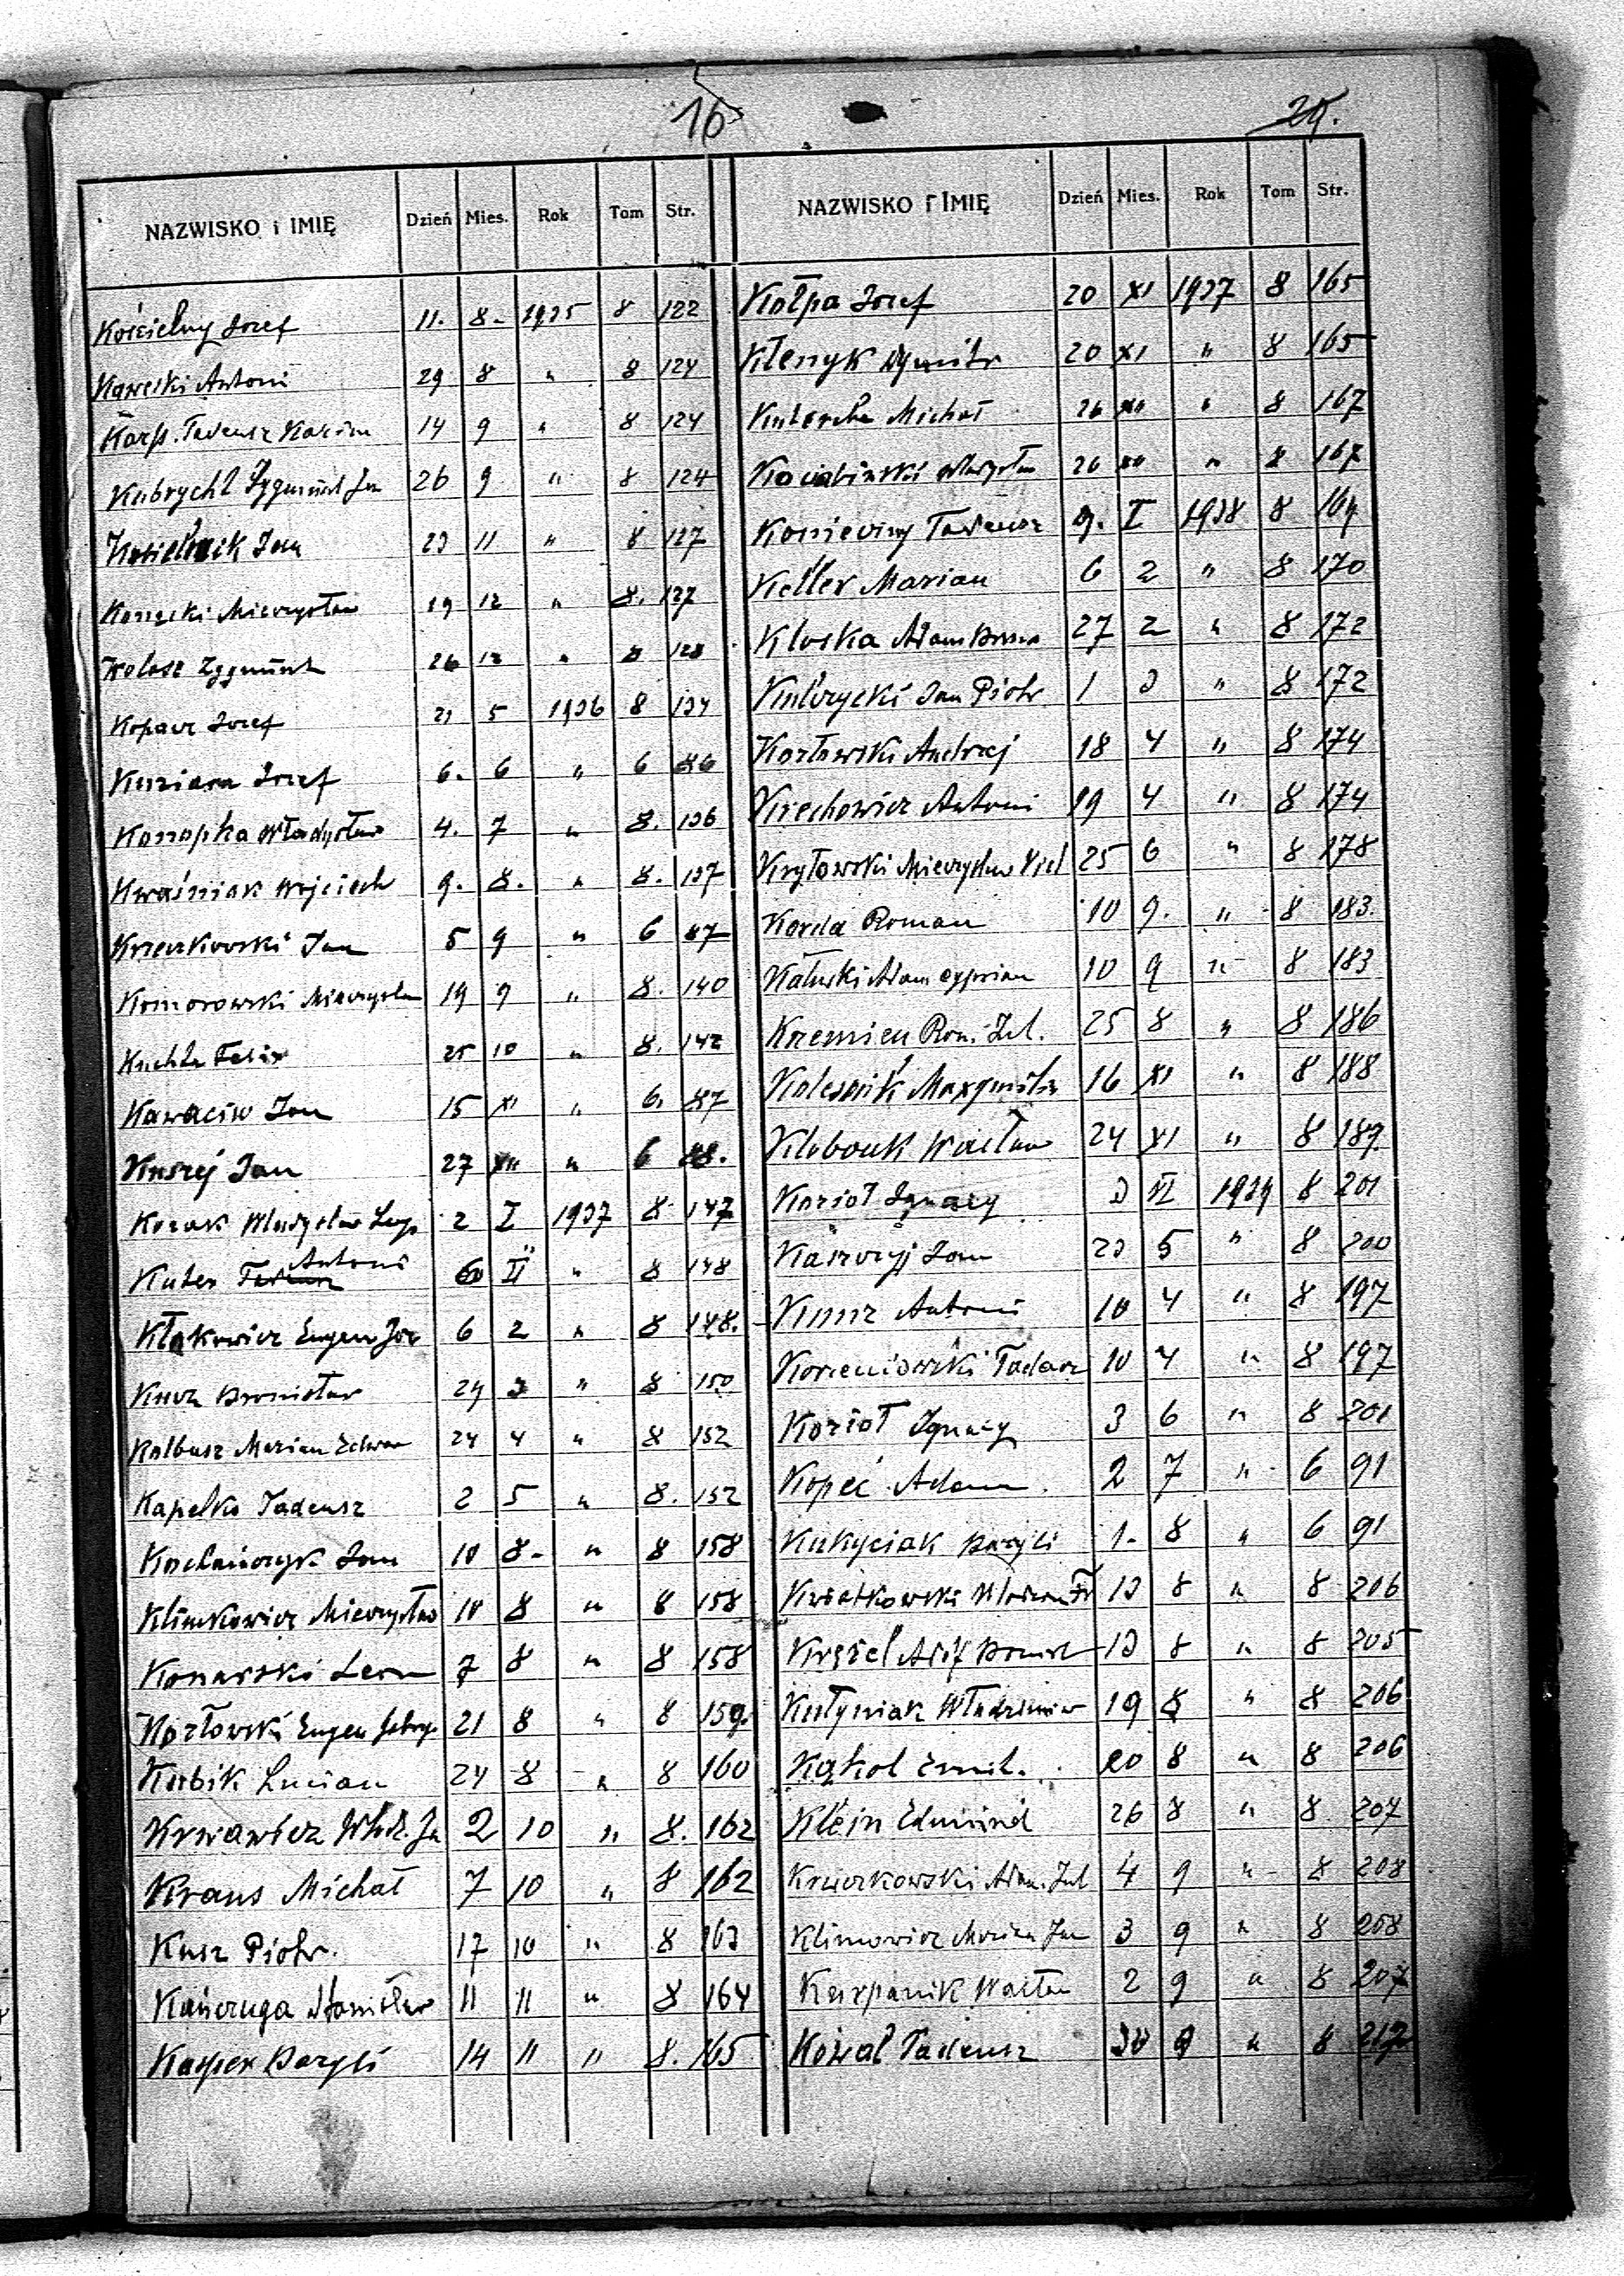 16 29.
NAZWISKO i IMIĘ Dzień Mies. Rok Tom Str.
Kościelny Jozef 11. 8- 1935 8 122
Kawecki Antoni 29 8 " 8 124
Karp. Tadeusz 14 9 " 8 124
Kubrycht Zygmunt Jan 26 9 " 8 124
Jan 23 11 " 8 127
Mieczysław 19 12 " 8. 127
Kolasz Zygmunt 26 12 " 8 128
Kopacz Jozef 21 5 1936 8 134
Kuziara Jozef 6. 6 " 6 86
Konopka Władysław 4. 7 " 8. 136
Kwaśniak Wojciech 9. 8. " 8. 137
Krzeczkowski Jan 5 9 " 6 87
Komorowski Mieczysław 19 9 " 8. 140
Kuchta Felix 25 10 " 8. 142
Kawaciw Jan 15 XI " 6. 87
Kuszej Jan 27 XII " 6 88.
Kozak Władysław 2 I 1937 8 147
Kuter Antoni 6 II " 8 148
Kłakowicz Eugen Joz 6 2 " 8 148.
Kucz Bronisław 24 3 " 8 150
Kolbusz Marian Edwar 24 4 " 8 152
Kapelko Tadeusz 2 5 " 8. 152
Kochańczyk Jan 10 8- " 8 158
Klimkowicz Mieczysław 10 8 " 8 158
Konarski Leon 7 8 " 8 158
Kozłowski Eugen 21 8 " 8 159.
Kubik Lucian 24 8 " 8 160
Krwawicz Włodz. Ja 2 10 " 8. 162
Kraus Michał 7 10 " 8 162
Kusz Piotr. 17 10 " 8 163
Kańczuga Stanisław 11 11 " 8 164
Kasper Bazyli 14 11 " 8. 165
NAZWISKO i IMIĘ Dzień Mies. Rok Tom Str.
Kołpa Jozef 20 XI 1937 8 165
Kłenyk Dymitr 20 XI " 8 165
Michał 26 XII " 8 167
Kociabiński Władysław 26 XII " 8 167
Konieczny Tadeusz 9. I 1938 8 169
Keller Marian 6 2 " 8 170
Kloska Adam 27 2 " 8 172
Kulczycki Jan Piotr 1 3 " 8 172
Kozłowski Andrzej 18 4 " 8 174
Kiechowicz Antoni 19 4 " 8 174
Kryłowski Mieczysław 25 6 " 8 178
Korda Roman 10 9. " 8 183.
Kałuski Adam Cyprian 10 9 " 8 183
Krzemien Rom. Jul. 25 8 " 8 186
Kolesnik Maxymilia 16 XI " 8 188
Klobouk Wacław 24 XI " 8 189.
Kozioł Ignacy 3 VI 1939 8 201
Kaszczyj Jan 23 5 " 8 200
Kunz Antoni 10 4 " 8 197
Korzeniowski Tadeusz 10 4 " 8 197
Kozioł Ignacy 3 6 " 8 201
Kopeć Adam 2 7 " 6 91
Kukyciak Bazyli 1. 8 " 6 91
Kwiatkowski 13 8 " 8 206
Krężel Adolf 13 8 " 8 205
Kutyniak Włodzimierz 19 8 " 8 206
Kąkol Emil. 20 8 " 8 206
Klein Edmund 26 8 " 8 207
Kruczkowski Adam. Jul 4 9 " 8 208
Klimowicz Marian Jan 3 9 " 8 208
Karpanik Walter 2 9 " 8 207
Kowal Tadeusz 30 9 " 8 212